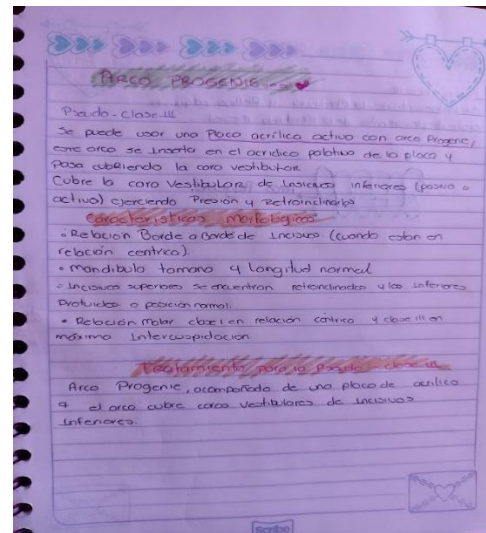 ARCO PROGENIE
Pseudo-Clase III
Se puede usar una Placa acrílica activa con arco Progenie,
este arco se inserta en el acrílico palatino de la placa y
pasa cubriendo la cara vestibular.
Cubre la cara Vestibular de Incisivos inferiores (pasivo o
activo) ejerciendo Presión y Retroinclinarlos
Características morfologicas:
• Relación Borde a Borde de Incisivos (cuando estan en
relación centrica).
• mandibula tamaño y longitud normal
• Incisivos superiores se encuentran retroinclinados y los inferiores
Protuidos o posición normal.
• Relación molar clase I en relación céntrica y clase III en
máxima Intercuspidacion
Tratamiento para la Pseudo clase III
Arco Progenie, acompañada de una placa de acrilico
y el arco cubre caras vestibulares de incisivos
inferiores.
Scribe